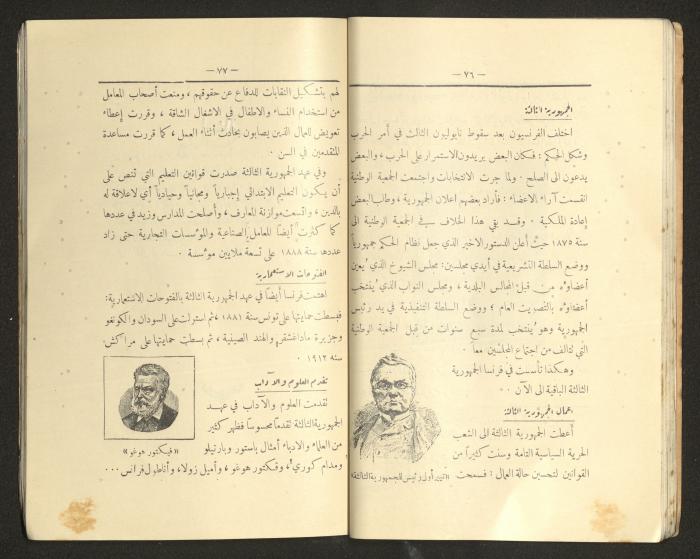 — ٧٦ —
الجمهورية الثالثة
اختلف الفرنسيون بعد سقوط نابوليون الثالث في أمر الحرب
وشكل الحكم : فكان البعض يريدون الاستمرار على الحرب ، والبعض
يدعون الى الصلح . ولما جرت الانتخابات واجتمعت الجمعية الوطنية
انقسمت آراء الاعضاء : فأراد بعضهم اعلان الجمهورية ، وطالب البعض
إعادة الملكية . وقد بقي هذا الخلاف في الجمعية الوطنية الى
سنة ١٨٧٥ حيث أعلن الدستور الاخير الذي جعل نظام الحكم جمهورياً
ووضع السلطة التشريعية في أيدي مجلسين : مجلس الشيوخ الذي يُعين
أعضاؤه من قبل المجالس البلدية ، ومجلس النواب الذي يُنتخب
أعضاؤه بالتصويت العام ؛ ووضع السلطة التنفيذية في يد رئيس
الجمهورية وهو يُنتخب لمدة سبع سنوات من قبل الجمعية الوطنية
التي تتألف من اجتماع المجلسين معاً .
وهكذا تأسست في فرنسا الجمهورية
الثالثة الباقية الى الآن . .
اعمال الجمهورية الثالثة
أعطت الجمهورية الثالثة الى الشعب
الحرية السياسية التامة وسنت كثيراً من
القوانين لتحسين حالة العمال : فسمحت
«تيير أول رئيس للجمهورية الثالثة»
— ٧٧ —
لهم بتشكيل النقابات للدفاع عن حقوقهم ، ومنعت أصحاب المعامل
من استخدام النساء والاطفال في الاشغال الشاقة ، وقررت إعطاء
تعويض للعمال الذين يصابون بحادث أثناء العمل ، كما قررت مساعدة
المتقدمين في السن .
وفي عهد الجمهورية الثالثة صدرت قوانين التعليم التي تنص على
أن يكون التعليم الابتدائي إجبارياً ومجانياً وحيادياً أي لا علاقة له
بالدين ، واتسعت موازنة المعارف ، وأصلحت المدارس وزيد في عددها
كما كثرت أيضاً المعامل الصناعية والمؤسسات التجارية حتى زاد
عددها سنة ١٨٨٨ على تسعة ملايين مؤسسة .
الفتوحات الاستعمارية
اهتمت فرنسا أيضاً في عهد الجمهورية الثالثة بالفتوحات الاستعمارية :
فبسطت حمايتها على تونس سنة ١٨٨١ ، ثم استولت على السودان والكونغو
وجزيرة ماداغشقر والهند الصينية ، ثم بسطت حمايتها على مراكش
سنة ١٩١٢ .
تقدم العلوم والآداب
تقدمت العلوم والآداب في عهد
الجمهورية الثالثة تقدماً محسوساً فظهر كثير
من العلماء والادباء أمثال باستور وبارتيلو
«فيكتور هوغو»
ومدام كوري ، وفكتور هوغو ، وأميل زولا ، وأناطول فرانس . . .